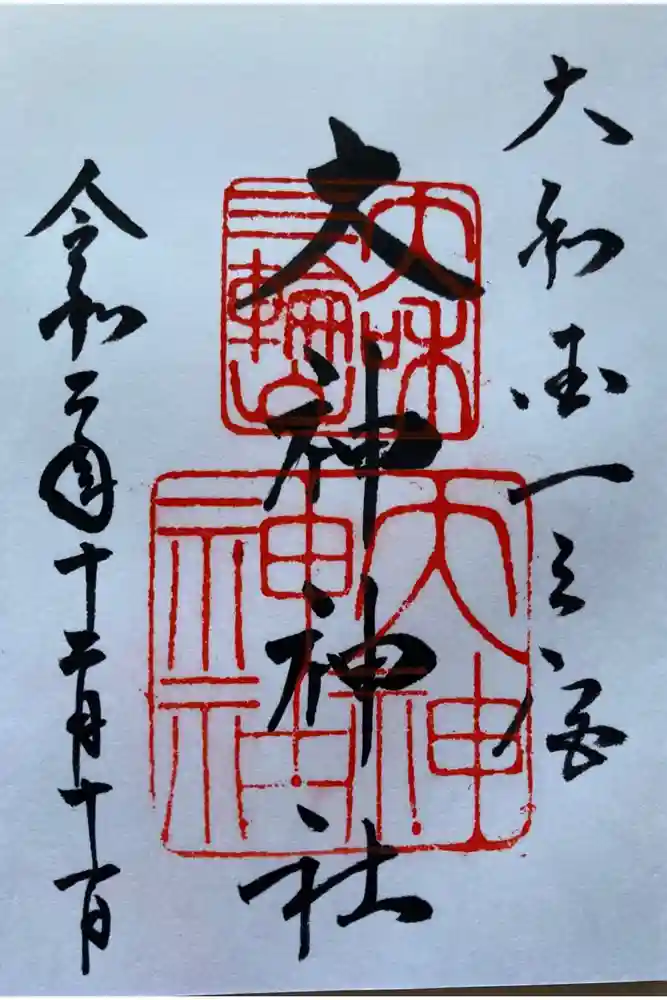 大和国一之宮
大神神社
大和
三輪山
大神
神社
令和二年十二月十一日